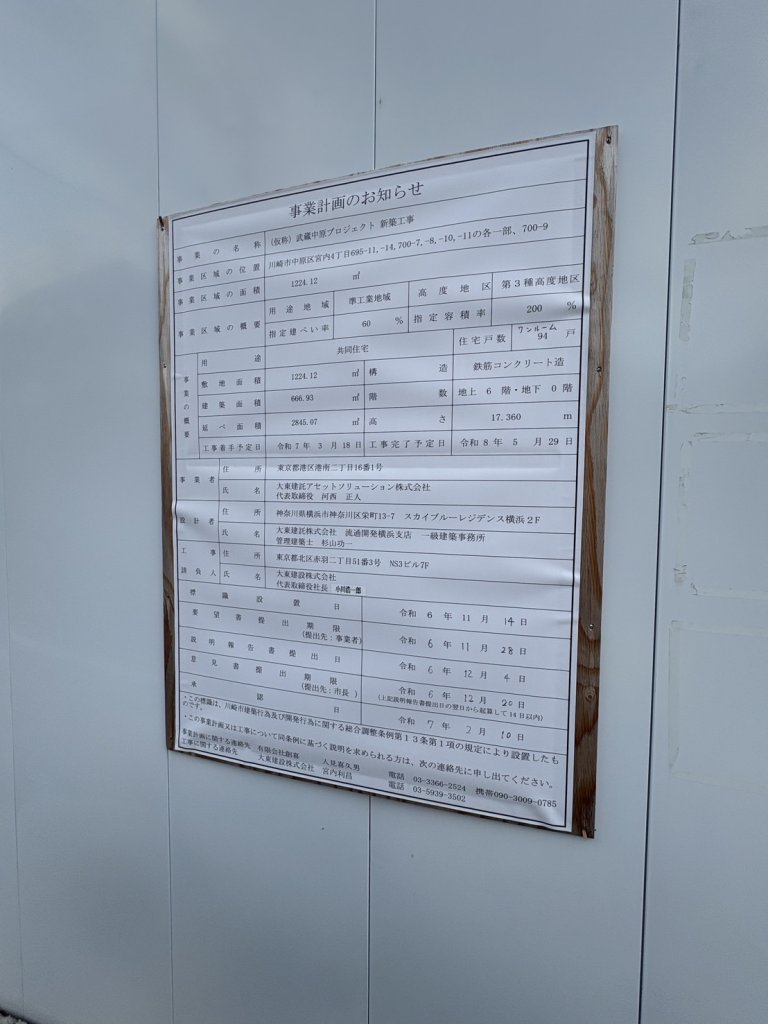 事業計画のお知らせ
事業の名称 (仮称) 武蔵中原プロジェクト 新築工事
事業区域の位置 川崎市中原区宮内4丁目695-11,-14,700-7,-8,-10,-11の各一部、700-9
事業区域の面積 1224.12 ㎡
事業区域の概要 用途地域 準工業地域 高度地区 第3種高度地区
指定建ぺい率 60 % 指定容積率 200 %
事業の概要 用途 共同住宅 住宅戸数 ワンルーム 94 戸
敷地面積 1224.12 ㎡ 構造 鉄筋コンクリート造
建築面積 666.93 ㎡ 階数 地上 6 階・地下 0 階
延べ面積 2845.07 ㎡ 高さ 17.360 m
工事着手予定日 令和 7 年 3 月 18 日 工事完了予定日 令和 8 年 5 月 29 日
事業者 住所 東京都港区港南二丁目16番1号
氏名 大東建託アセットソリューション株式会社
代表取締役 河西 正人
設計者 住所 神奈川県横浜市神奈川区栄町13-7 スカイブルーレジデンス横浜2F
氏名 大東建託株式会社 流通開発横浜支店 一級建築事務所
管理建築士 杉山功一
工事請負人 住所 東京都北区赤羽二丁目51番3号 NS3ビル7F
氏名 大東建設株式会社
代表取締役社長 小川浩一郎
標識設置日 令和 6 年 11 月 14 日
要望書提出期限 (提出先:事業者) 令和 6 年 11 月 28 日
説明報告書提出日 令和 6 年 12 月 4 日
意見書提出期限 (提出先:市長) 令和 6 年 12 月 20 日
(上記説明報告書提出日の翌日から起算して14日以内)
承認日 令和 7 年 2 月 10 日
・この標識は、川崎市建築行為及び開発行為に関する総合調整条例第13条第1項の規定により設置したも
のです。
・この事業計画又は工事について同条例に基づく説明を求められる方は、次の連絡先に申し出てください。
事業計画に関する連絡先 有限会社創喜 人見喜久男 電話 03-3366-2524 携帯090-3009-0785
工事に関する連絡先 大東建設株式会社 宮内利昌 電話 03-5939-3502